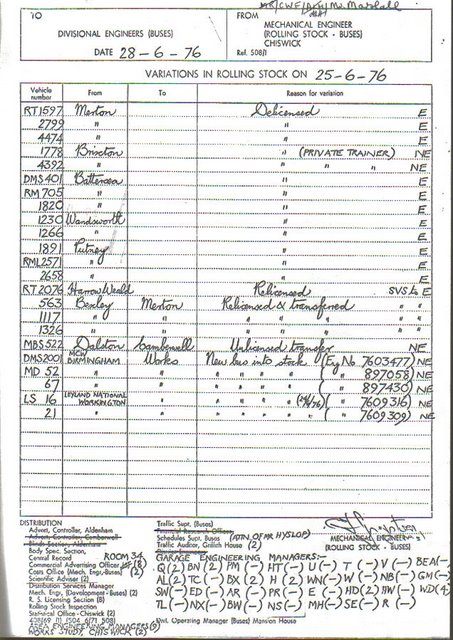 TO
DIVISIONAL ENGINEERS (BUSES)
DATE 28-6-76
FROM
MECHANICAL ENGINEER
(ROLLING STOCK - BUSES)
CHISWICK
Ref. 508/1
VARIATIONS IN ROLLING STOCK ON 25-6-76
Vehicle number From To Reason for variation
RT1597 Merton Delicensed E
2799 " " E
4474 " " E
1778 Brixton " (PRIVATE TRAINER) NE
4392 " " " " NE
DMS401 Battersea " E
RM705 " " E
1820 " " E
1230 Wandsworth " E
1266 " " E
1891 Putney " E
RML2571 " " E
2658 " " E
RT2076 Harrow Weald Relicensed E
563 Bexley Merton Relicensed & transferred "
1117 " " " " " "
1326 " " " " " "
MBS522 Dalston Camberwell Unlicensed transfer NE
DMS2009 MCW BIRMINGHAM Works New bus into stock (Eng No 7603477) NE
MD 52 " " " " " " ( " 897058) NE
67 " " " " " " ( " 897430) NE
LS 16 LEYLAND NATIONAL WORKINGTON " " " " " ( " 7609316) NE
21 " " " " " " ( " 7609309) NE
DISTRIBUTION
Advert. Controller, Aldenham
Advert. Controller, Camberwell
Blinds Section, Aldenham
Body Spec. Section,
Central Record ROOM 34
Commercial Advertising Officer (8)
Costs Office (Mech. Engr., Buses) (2)
Scientific Adviser (2)
Distribution Services Manager
Mech. Engr. (Development - Buses) (2)
R. S. Licensing Section (8)
Rolling Stock Inspection
Technical Office - Chiswick (2)
AREA ENGINEERING MANAGERS
WORKS STUDY, CHISWICK (2)
Traffic Supt. (Buses)
Schedules Supt. Buses (ATN. OF MR HYSLOP)
Traffic Auditor, Griffith House (2)
MECHANICAL ENGINEER
(ROLLING STOCK - BUSES)
GARAGE ENGINEERING MANAGERS:-
Q(2) BN(2) PM(-) HT(-) U(-) T(-) V(-) BEA(-)
AL(2) TC(-) BX(2) H(2) WN(-) W(-) NB(-) GM(-)
SW(-) ED(-) AR(-) PR(-) E(-) HD(2) HW(-) WD(4)
TL(-) NX(-) BW(-) NS(-) MH(-) SE(-) R(-)
Divl. Operating Manager (Buses) Mansion House